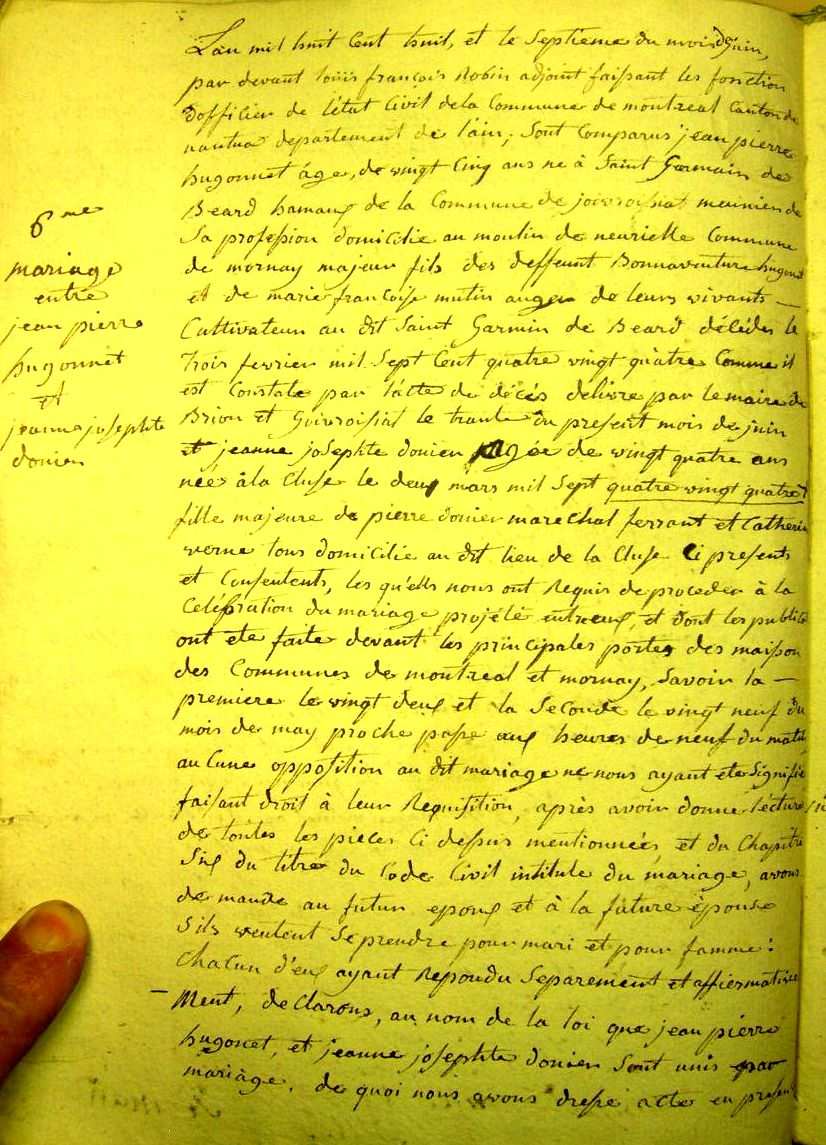 L'an mil huit Cent huit, et le Septieme du mois de juin,
par devant louis françois Robin adjoint faissant les fonction
dofficier de l'état Civil de la Commune de montreal Canton de
nantua departement de l'ain, Sont Comparus jean pierre
hugonnet âge, de vingt Cinq ans ne à Saint Germain de
Beard hamaux de la Commune de meunier de
Sa profession domicilie au moulin de neurielle Commune
de mornay majeur fils des deffeunt Bonnaventure hugonet
et de marie françoise mutin de leurs vivants —
Cultivateur au dit Saint Garmin de Beard décédés le
trois fevrier mil Sept Cent quatre vingt quàtre Comme il
est Constate par l'acte de décés délivre par le maire de
Brion et le trante du present mois de juin
et jeanne josephte donier agée de vingt quatre ans
née à la Cluse le deux mars mil Sept quatre vingt quatre
fille majeure de pierre donier marechal ferrant et Catherin
verne tous domicilie au dit lieu de la Cluse Ci presents
et Consentents, les qu'ells nous ont Requis de proceder à la
Celébration du mariage projété entreeux, et dont les publica
ont ete faite devant les principales portes des maison
des Communes de montreal et mornay, Savoir la —
premiere le vingt deux et la Seconde le vingt neuf du
mois de may proche passe aux heures de neuf du matin
au Cune opposition au dit mariage ne nous ayant ete Signifie
faisant droit à leur Requisition, après avoir donne lécture
de toutes les pieces Ci dessus mentionnées, et du Chapitre
Six du titre du Code Civil intitule du mariage, avons
de mande au futur epoux et à la future épouse
Sils veulent Se prendre pour mari et pour famme :
Chacun d'eux ayant Repondu Separement et affiermative
— Ment, declarons, au nom de la loi que jean pierre
hugonet, et jeanne josephte donier Sont unis par
mariàge, de quoi nous avons dresse acte en presen
6me
mariage
entre
jean pierre
hugonnet
et
jeanne josephte
donier